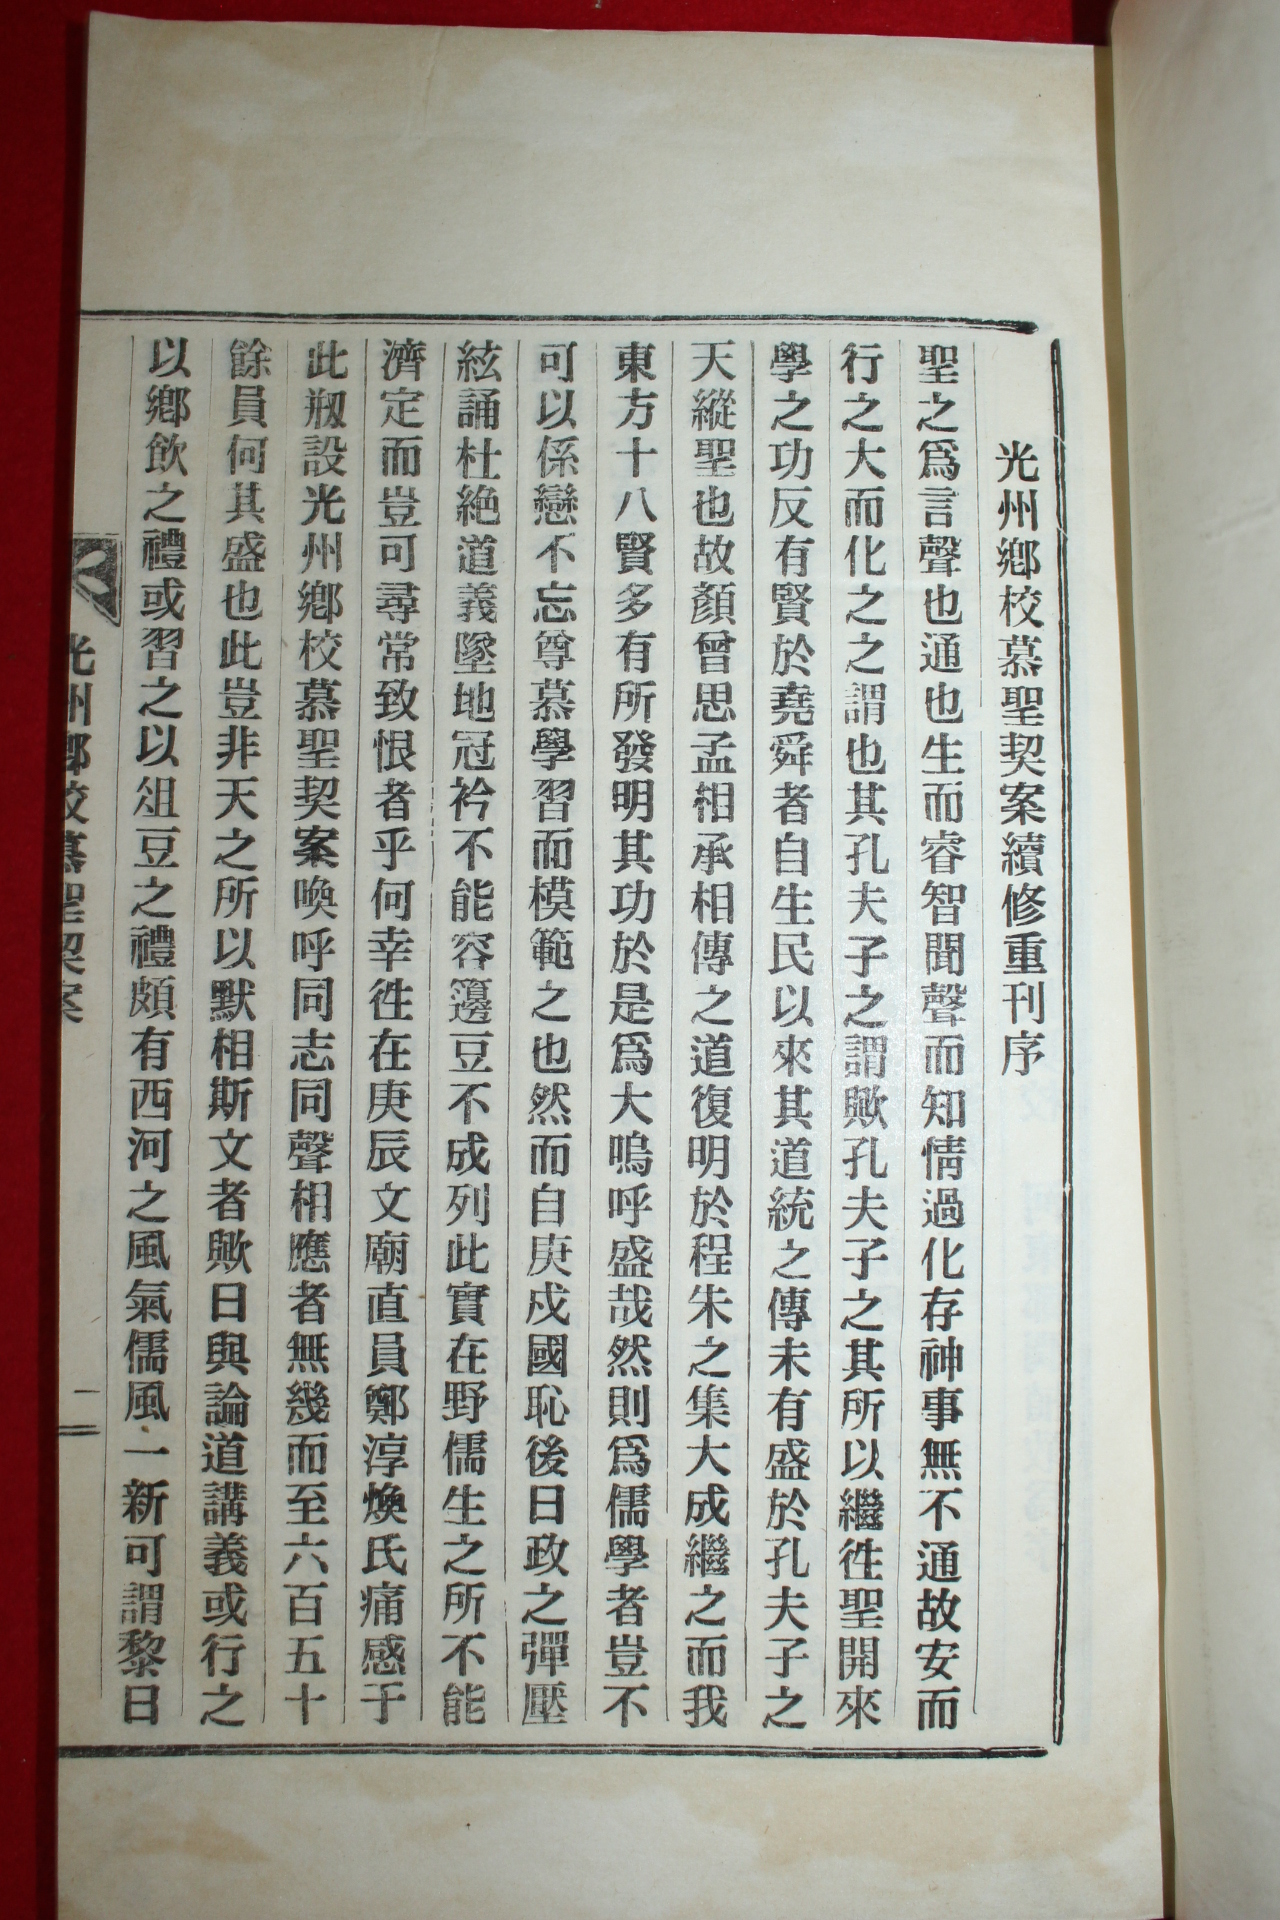 光州鄕校慕聖契案續修重刊序
聖之爲言聲也通也生而睿智聞聲而知情過化存神事無不通故安而
行之大而化之之謂也其孔夫子之謂歟孔夫子之其所以繼徃聖開來
學之功反有賢於堯舜者自生民以來其道統之傳未有盛於孔夫子之
天縱聖也故顏曾思孟相承相傳之道復明於程朱之集大成繼之而我
東方十八賢多有所發明其功於是爲大嗚呼盛哉然則爲儒學者豈不
可以係戀不忘尊慕學習而模範之也然而自庚戍國恥後日政之彈壓
絃誦杜絶道義墜地冠衿不能容籩豆不成列此實在野儒生之所不能
濟定而豈可尋常致恨者乎何幸徃在庚辰文廟直員鄭淳煥氏痛感于
此刱設光州鄕校慕聖契案喚呼同志同聲相應者無幾而至六百五十
餘員何其盛也此豈非天之所以默相斯文者歟日與論道講義或行之
以鄕飮之禮或習之以俎豆之禮頗有西河之風氣儒風一新可謂黎日
光州鄕校慕聖契案
一